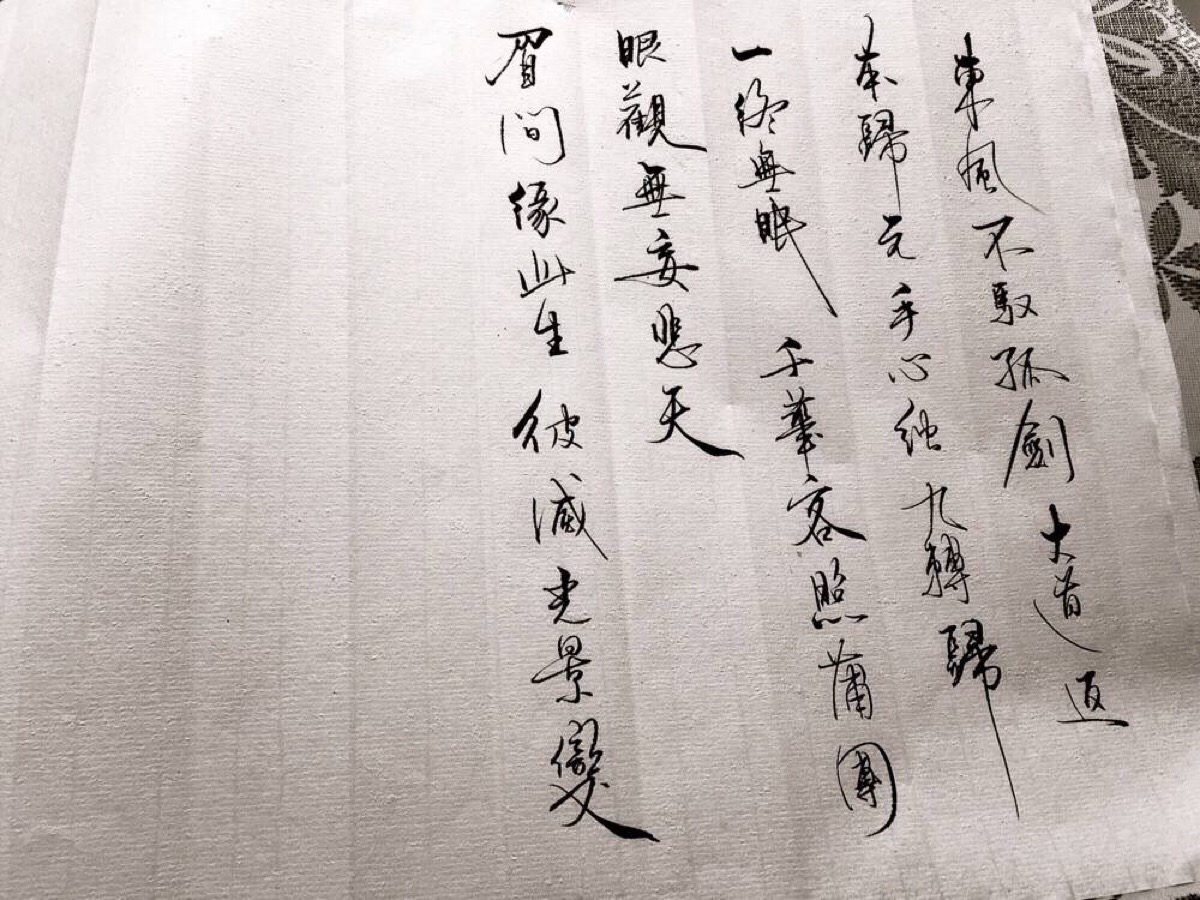 東風不馭孤劍大道返
本歸元手心蝕九轉歸
一終無眠千華容照蒲團
眼觀無妄悲天
眉間緣此生彼滅光景變